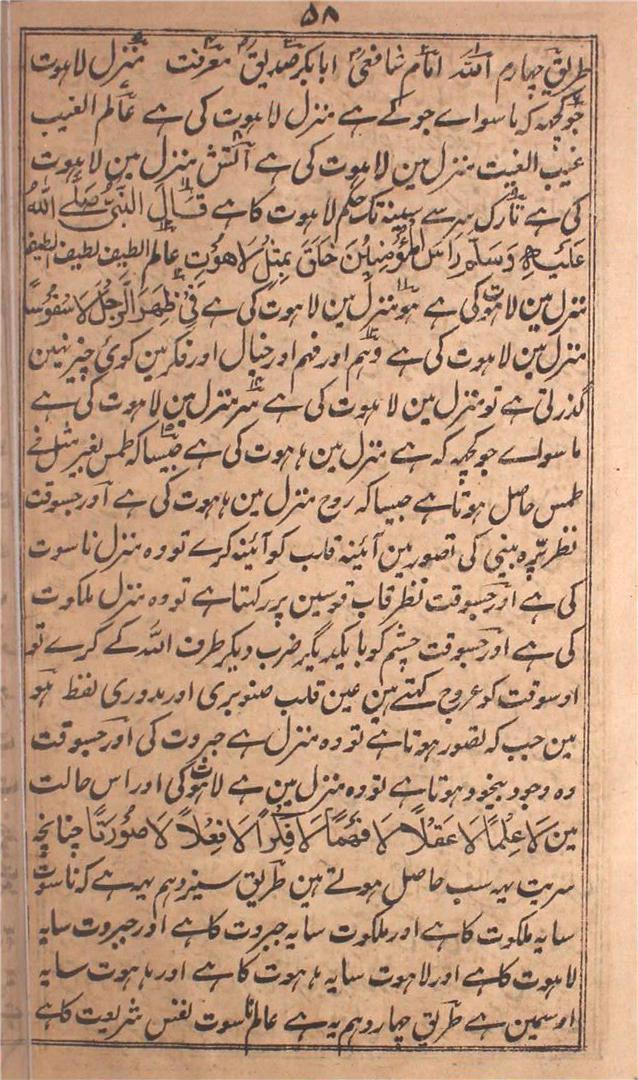 ۵۸
طریق چهارم اللہ امام شافعی ابابکر صدیق معرفت منزل لاہوت
جو کچہہ کہ ماسواے جو کے ہے منزل لاہوت کی ہے عالم الغیب
غیب الغیب منزل مین لاہوت کی ہے آتش منزل مین لاہوت
کی ہے تارک سر سے سینہ تک حکم لاہوت کا ہے قَالَ النَّبِیُّ صَلَّے اللہُ
عَلَیْہِ وَسَلَّمَ رَاسَ الْمُؤْمِنِیْنَ خَلَقَ بِمِثْلِ لَاهُوْتِ عالم الطیف لطیف الطیف
منزل مین لاہوت کی ہے ہو منزل مین لاہوت کی ہے فِیْ ظَهَرَ الرَّجُلُ
منزل مین لاہوت کی ہے وہم اور فہم اور خیال اور فکر مین کوئی چیز نہین
گذرتی ہے تو منزل مین لاہوت کی ہے سر منزل مین لاہوت کی ہے
ماسواے جو کچہہ کہ ہے منزل مین ہاہوت کی ہے جیسا کہ طمس بغیر مثل نے
طمس حاصل ہوتا ہے جیسا کہ روح منزل مین ہاہوت کی ہے اور جسوقت
نظر پرّہ بینی کی تصور مین آئینہ قلب کو آئینہ کرے تو وہ منزل ناسوت
کی ہے اور جسوقت نظر قاب قوسین پر رکہتا ہے تو وہ منزل ملکوت
کی ہے اور جسوقت چشم کو بایکدیگر ضرب دیکر طرف اللہ کے کرے تو
اوسوقت کو عروج کہتے ہین عین قلب صنوبری اور مدوری لفظ ہو
مین جب کہ تصور ہوتا ہے تو وہ منزل ہے جبروت کی اور جسوقت
وہ وجود بیخود ہوتا ہے تو وہ منزل مین ہے لاہوت کی اور اس حالت
مین لَا عِلْمًا لَا عَقْلًا لَا فَهْمًا لَا فِکْرًا لَا فِعْلًا لَا صُوْرَتًا چنانچہ
سریت یہہ سب حاصل ہوتے ہین طریق سیزدہم یہہ ہے کہ ناسوت
سایہ ملکوت کا ہے اور ملکوت سایہ جبروت کا ہے اور جبروت سایہ
لاہوت کا ہے اور لاہوت سایہ ہاہوت کا ہے اور ہاہوت سایہ
اوسمین ہے طریق چہاردہم یہ ہے عالم ناسوت نفس شریعت کا ہے